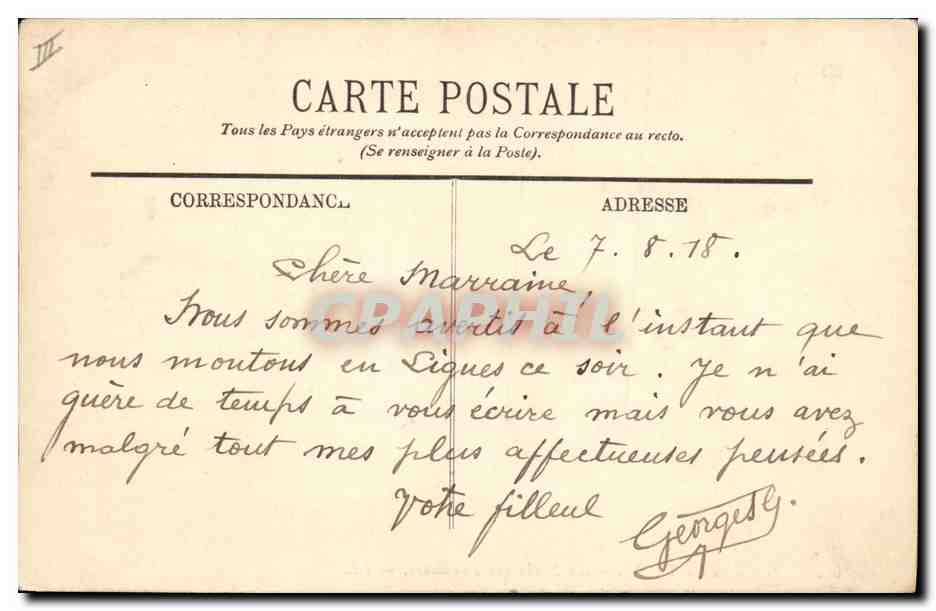 III
CARTE POSTALE
Tous les Pays étrangers n'acceptent pas la Correspondance au recto.
(Se renseigner à la Poste).
CORRESPONDANCE
ADRESSE
Le 7.8.18.
Chère Marraine,
Nous sommes avertis à l'instant que
nous montons en Lignes ce soir. Je n'ai
guère de temps à vous écrire mais vous avez
malgré tout mes plus affectueuses pensées.
Votre filleul
Georges G.
CPAPHIL